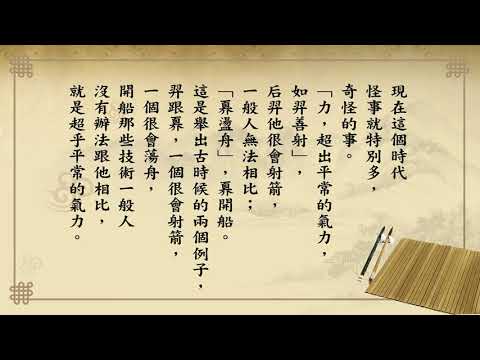 現在這個時代
怪事就特別多，
奇怪的事。
「力，超出平常的氣力，
如羿善射」，
后羿他很會射箭，
一般人無法相比；
「奡盪舟」，奡開船。
這是舉出古時候的兩個例子，
羿跟奡，一個很會射箭，
一個很會蕩舟，
開船那些技術一般人
沒有辦法跟他相比，
就是超乎平常的氣力。